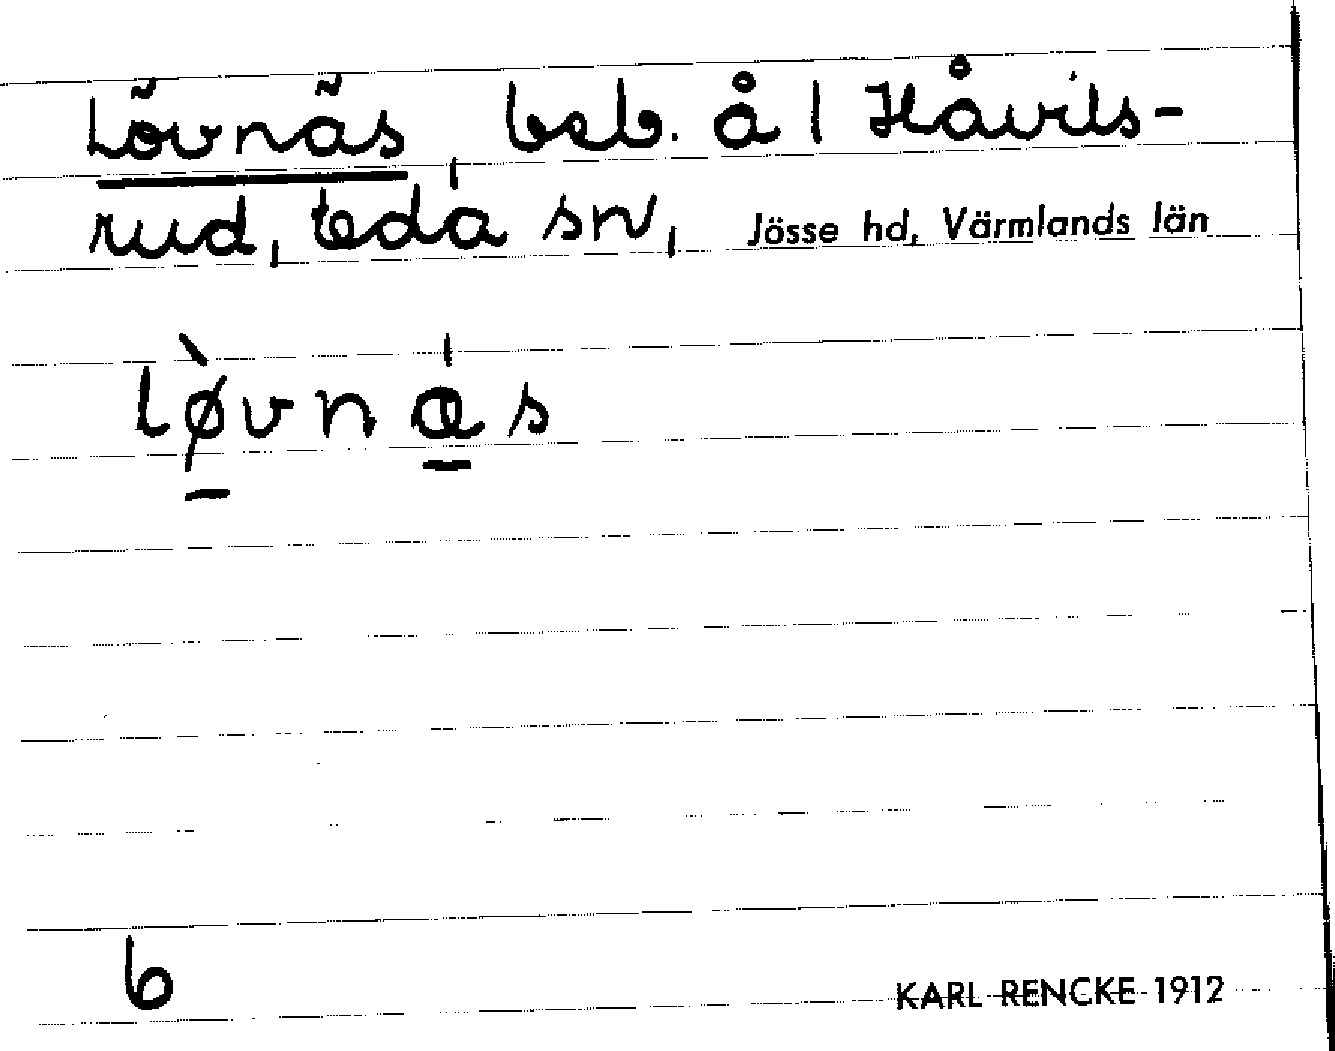 Lövnäs, beb. å 1 Håvils-
rud, Eda sn, Jösse hd, Värmlands län
lø̱̀vna̱s
6
KARL RENCKE 1912